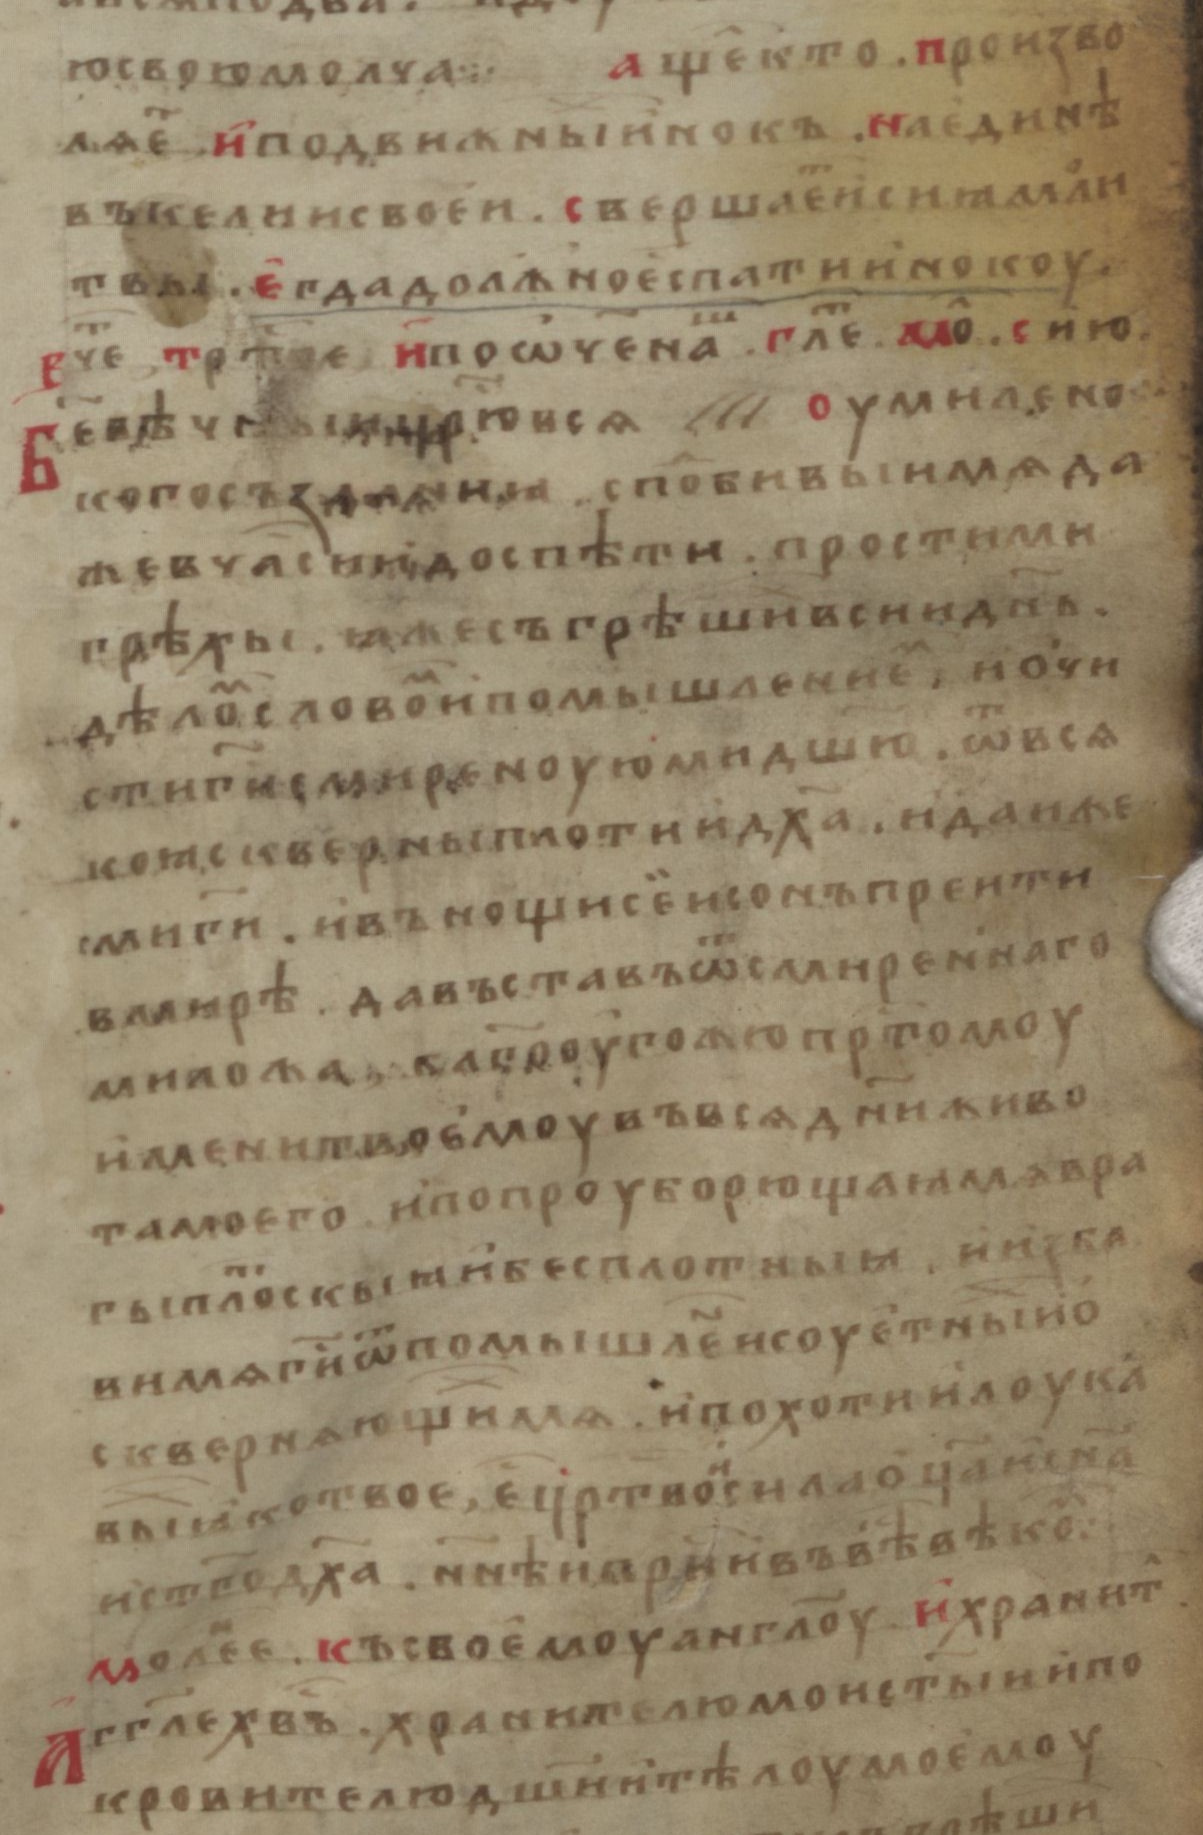 юсвоюмолча⁘ ащекто . произво
ляе҃ . иподвижныинокъ . наединѣ
въкелиисвоеи . свершае҃тисиꙗмл҃и
твы . егдадолжноеспатиинокоу .
вч҃е тр҃тое ипоѡчена҃ш . гл҃е . мо҃ . сию .
Бе҃вѣчныицр҃ювсѧ оумилено
когосъзданиꙗ . спо҃бивыимѧда
жевчасииидоспѣти . простими
грѣхы . ꙗжесъгрѣшивсиидн҃ь .
дѣло҃мсловом҃ипомышление҃м , иочи
стиг҃исмиреноуюмидш҃ю . ѿвсѧ
коꙗскверныплотиидх҃а . идаиже
миг҃и . ивънощисеисонъпреити
вмирѣ . давъставъѿсмиреннаго
миложа , блг҃оугожюпрт҃омоу
именитвоемоувъвсѧдн҃иживо
тамоего . ипопроуборющаꙗмѧвра
гыпло҃тскыꙗибесплотныꙗ . иизба
вимѧг҃иѿпомышле҃нсоуетныио
сквернѧющимѧ . ипохотиилоука
выꙗкотвое҃ , ецр҃твоисилаоц҃аисн҃а
ист҃годх҃а . нн҃ѣипр҃ниивъвѣвѣко҃ :
моле҃е . късвоемоуанглоу ихранит҃
Агг҃лехв҃ъ . хранителюмоист҃ыиипо
кровителюдш҃иитѣлоумоемоу